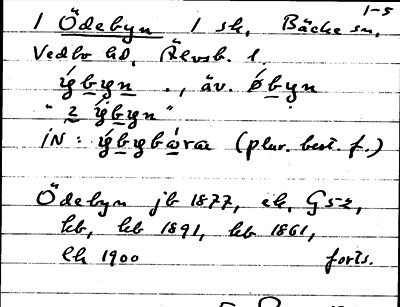 1-5
1 Ödebyn 1 sk, Bäcke sn,
Vedbo hd, Älvsb. l.
ýbyn ., äv. øbyn
" 2 ýbyn "
iN: ýbybωrar (plur. best. f.)
Ödebyn jb 1877, ek, GSz,
kb, hb 1891, hb 1861,
lh 1900 forts.